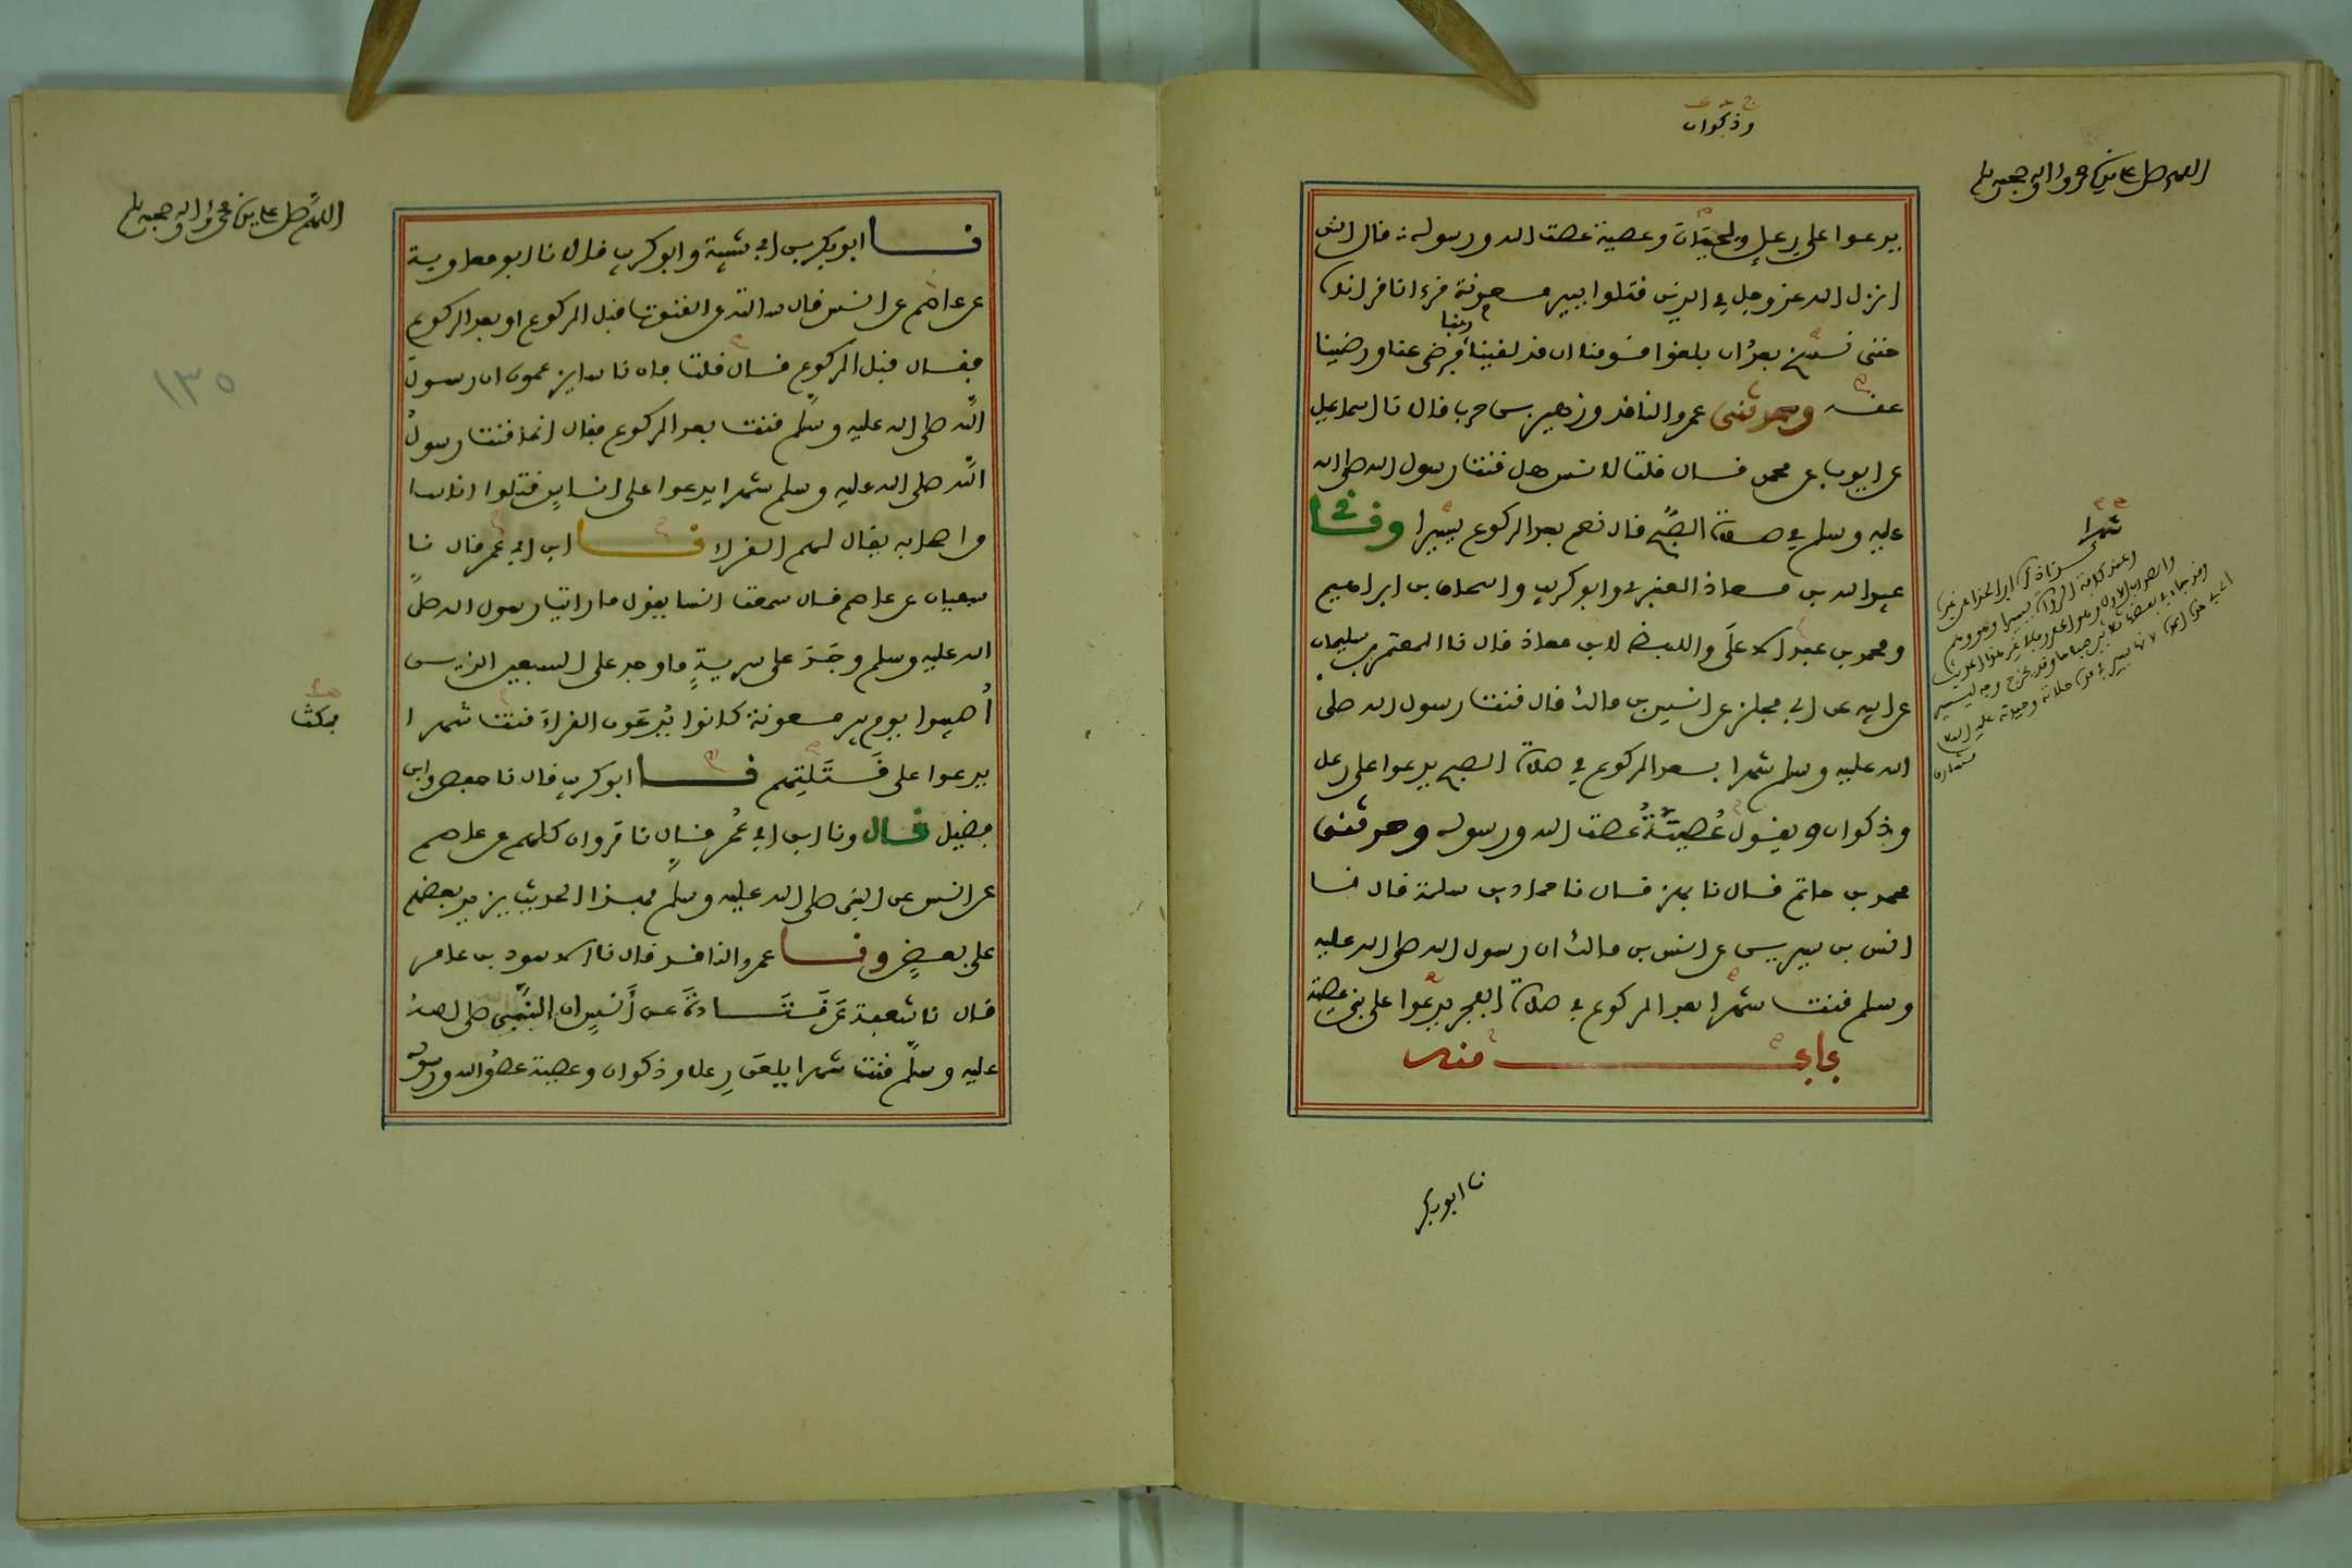 وذكوان
اللهم صل على سيدنا محمد وءاله وصحبه وسلم
يدعوا على رعل ولحيان وعصية عصت الله ورسوله قال انس
انزل الله عز وجل في الذين قتلوا ببير معونة قرءانا قراناه
حتى نسخ بعد ان بلغوا قومنا ان قد لقينا ربنا فرضي عنا ورضينا
عنه وحدثني عمرو الناقد وزهير بن حرب قال نا اسماعيل
عن ايوب عن محمد قال قلت لانس هل قنت رسول الله صلى الله
عليه وسلم في صلاة الصبح قال نعم بعد الركوع يسيرا وثني
عبيد الله بن معاذ العنبري وابو كريب واسحاق بن ابراهيم
ومحمد بن عبد الاعلى واللفظ لابن معاذ قال نا المعتمر بن سليمان
عن ابيه عن ابي مجلز عن انس بن مالك قال قنت رسول الله صلى
الله عليه وسلم شهرا بعد الركوع في صلاة الصبح يدعوا على رعل
وذكوان ويقول عصية عصت الله ورسوله وحدثني
محمد بن حاتم قال نا بهز قال نا حماد بن سلمة قال انا
انس بن سيرين عن انس بن مالك ان رسول الله صلى الله عليه
وسلم قنت شهرا بعد الركوع في صلاة الفجر يدعوا على بني عصية
منه
شهرا
نا ابو بكر
اللهم صل على سيدنا محمد وءاله وصحبه وسلم
نا ابو بكر بن ابي شيبة وابو كريب قالا نا ابو معاوية
عن عاصم عن انس قال سالته عن القنوت قبل الركوع او بعد الركوع
فقال قبل الركوع قال قلت فان ناسا يزعمون ان رسول
الله صلى الله عليه وسلم قنت بعد الركوع فقال انما قنت رسول
الله صلى الله عليه وسلم شهرا يدعوا على اناس قتلوا اناسا
من اصحابه يقال لهم القراء نا ابن ابي عمر قال نا
سفيان عن عاصم قال سمعت انسا يقول ما رايت رسول الله صلى
الله عليه وسلم وجد على سرية ما وجد على السبعين الذين
اصيبوا يوم بير معونة كانوا يدعون القراء فمكث شهرا
يدعوا على قتلتهم نا ابو كريب قال نا حفص وابن
فضيل قال ونا ابن ابي عمر قال نا مروان كلهم عن عاصم
عن انس عن النبي صلى الله عليه وسلم بهذا الحديث يزيد بعضهم
على بعض ونا عمرو الناقد قال نا الاسود بن عامر
قال نا شعبة عن قتادة عن انس ان النبي صلى الله
عليه وسلم قنت شهرا يلعن رعلا وذكوان وعصية عصوا الله ورسوله
فمكث
١٣٥